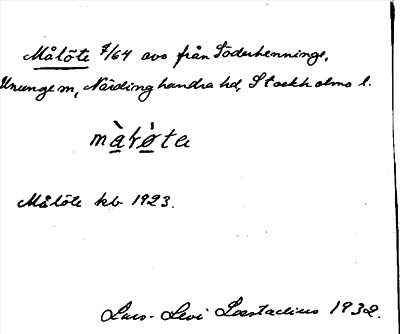 Målöte 7/64 avs från Söderhenninge,
Ununge sn, Närdinghundra hd, Stockholms l.
màk̀øta
Målöte kb 1923.
Lars-Levi Læstadius 1932.